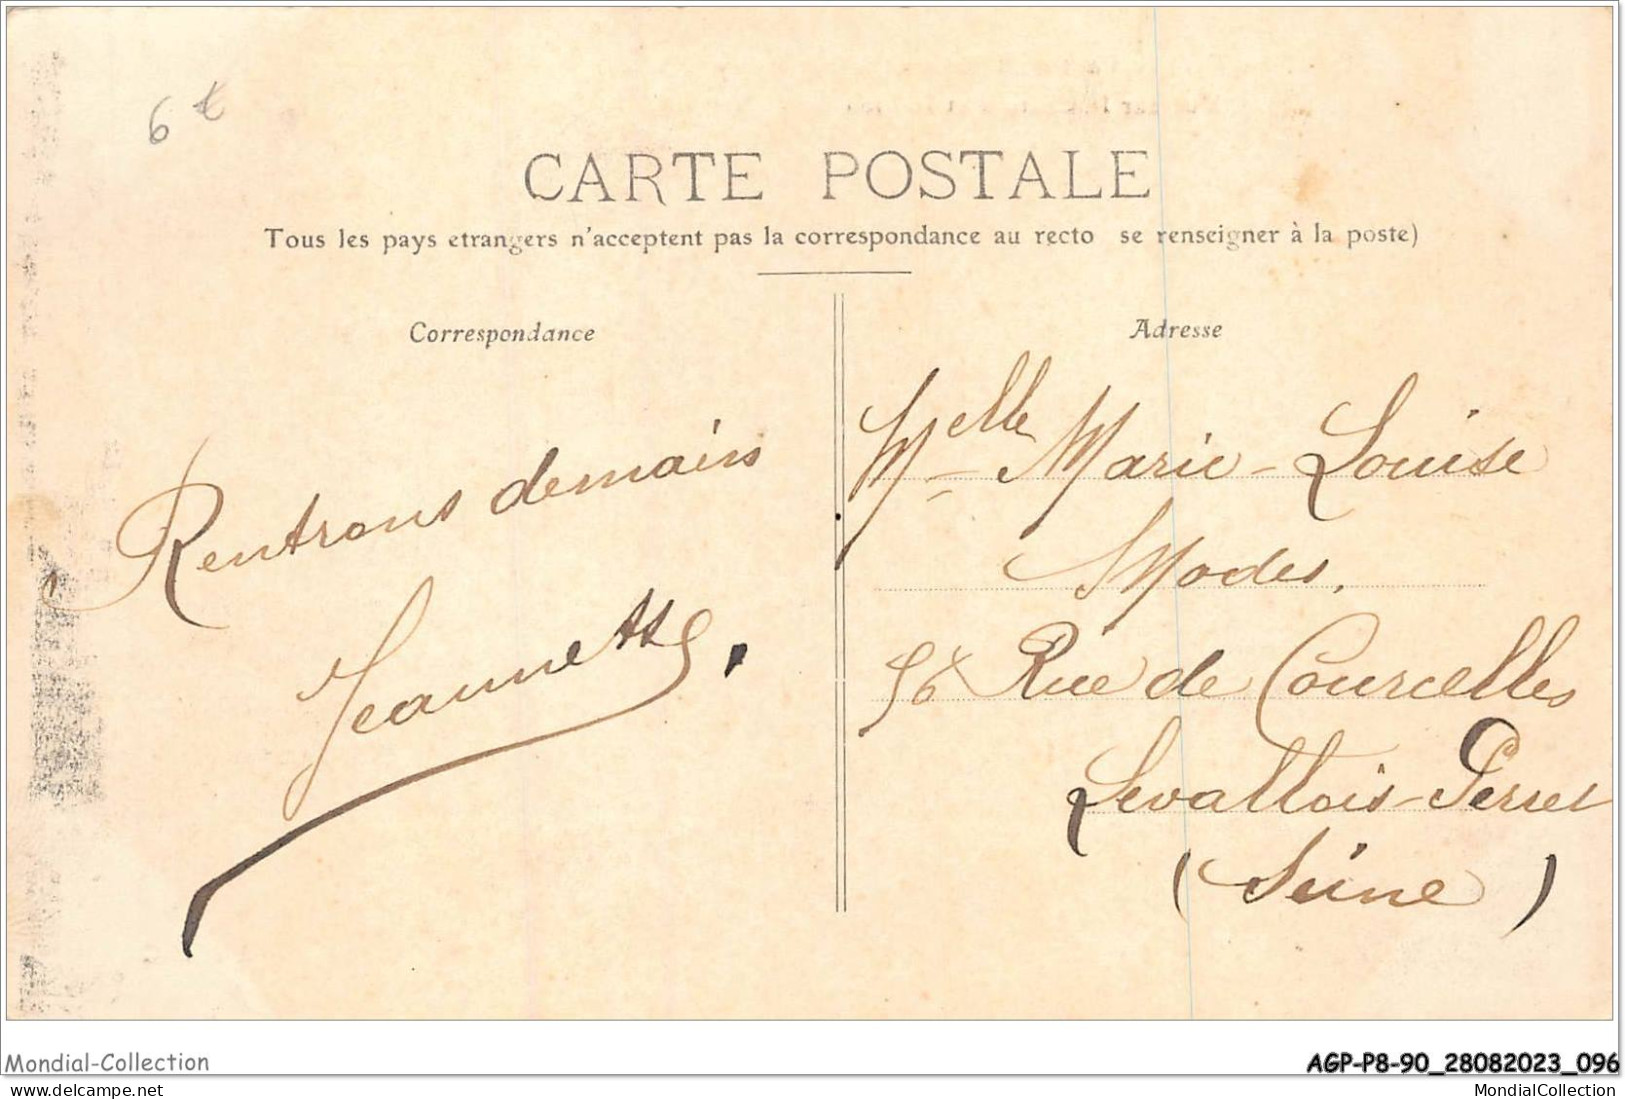 6 €
CARTE POSTALE
Tous les pays etrangers n'acceptent pas la correspondance au recto se renseigner à la poste)
Correspondance
Rentrons demain
Jeannette.
Adresse
Melle Marie-Louise
Modes.
56 Rue de Courcelles
Levallois-Perret
(Seine)
Mondial-Collection
AGP-P8-90_28082023_096
www.delcampe.net
MondialCollection